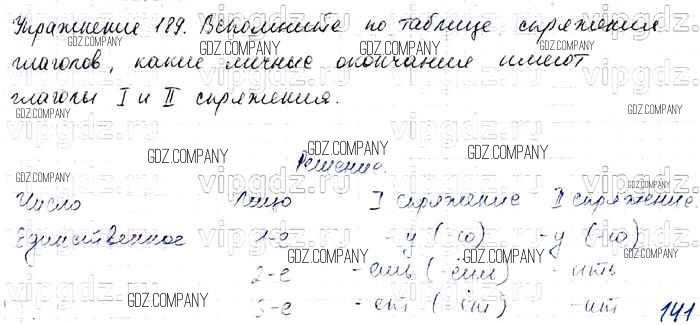 Упражнение 189. Вспомните по таблице спряжения
глаголов, какие личные окончания имеют
глаголы I и II спряжения.
Решение.
Число Лицо I спряжение II спряжение
Единственное 1-е -у (-ю) -у (-ю)
2-е -ешь (-ёшь) -ишь
3-е -ет (-ёт) -ит
141
GDZ.COMPANY
vipgdz.ru